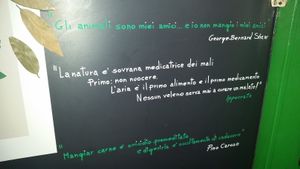 "Gli animali sono miei amici... e io non mangio i miei amici"
George Bernard Shaw
"La natura è sovrana medicatrice dei mali
Primo: non nuocere.
L'aria è il primo alimento e il primo medicamento
Nessun veleno serva mai a curare un malato!"
Ippocrate
"Mangiar carne è omicidio premeditato
e digerirla è occultamento di cadavere"
Pino Caruso